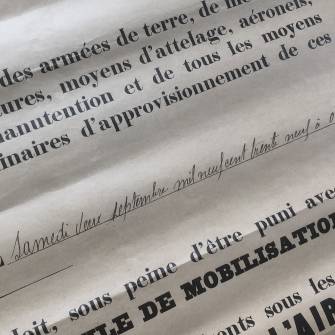 des armées de terre, de
ures, moyens d'attelage, aéronefs,
manutention et de tous les moyens
inaires d'approvisionnement de ces
Samedi deux septembre mil neuf cent trente neuf à
doit, sous peine d'être puni avec
LE DE MOBILISATION
sous les